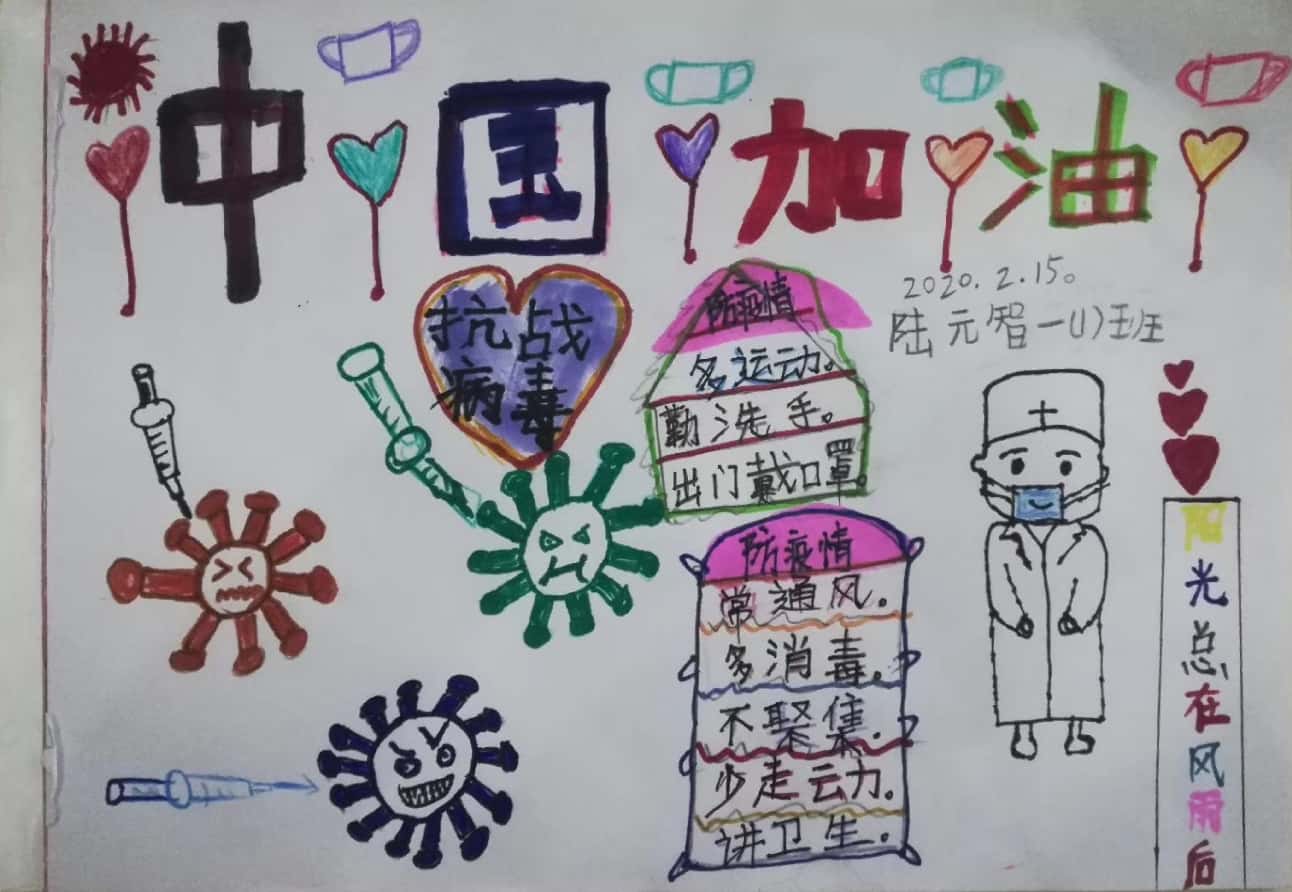 中国加油
2020.2.15。
陆元智一(1)班
抗战
病毒
防疫情
多运动。
勤洗手。
出门戴口罩。
防疫情
常通风。
多消毒。
不聚集。
少走云力。
讲卫生。
阳光总在风雨后